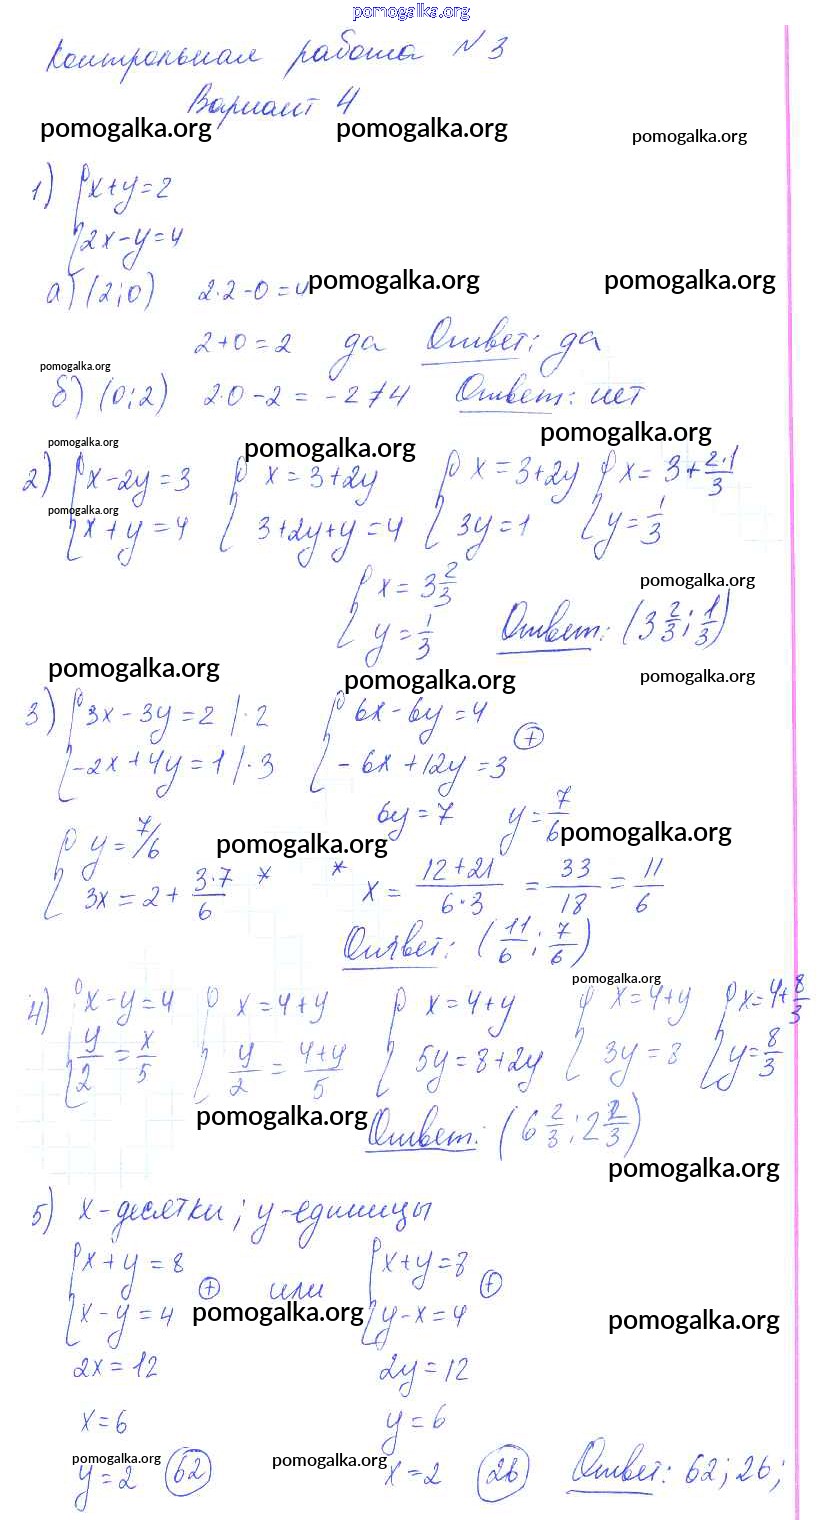 pomogalka.org
Контрольная работа №3
Вариант 4
pomogalka.org pomogalka.org pomogalka.org
1) { x+y=2
2x-y=4
а) (2;0) 2·2-0=4 pomogalka.org pomogalka.org
2+0=2 да Ответ: да
pomogalka.org
б) (0;2) 2·0-2=-2≠4 Ответ: нет
pomogalka.org pomogalka.org pomogalka.org
2) { x-2y=3 { x=3+2y { x=3+2y { x=3+2·1/3
pomogalka.org
x+y=4 3+2y+y=4 3y=1 y=1/3
{ x=3 2/3 pomogalka.org
y=1/3 Ответ: (3 2/3; 1/3)
pomogalka.org pomogalka.org pomogalka.org
3) { 3x-3y=2 |·2 { 6x-6y=4
-2x+4y=1 |·3 -6x+12y=3 ⊕
6y=7 y=7/6
{ y=7/6 pomogalka.org pomogalka.org
3x=2+3·7/6 * * x=12+21/6·3=33/18=11/6
Ответ: (11/6; 7/6)
pomogalka.org
4) { x-y=4 { x=4+y { x=4+y { x=4+y { x=4+8/3
y/2=x/5 y/2=4+y/5 5y=8+2y 3y=8 y=8/3
pomogalka.org
Ответ: (6 2/3; 2 2/3)
pomogalka.org
5) x-десятки; y-единицы
{ x+y=8 ⊕ или { x+y=8 ⊕
x-y=4 pomogalka.org y-x=4 pomogalka.org
2x=12 2y=12
x=6 y=6
pomogalka.org pomogalka.org
y=2 62 x=2 26 Ответ: 62; 26;